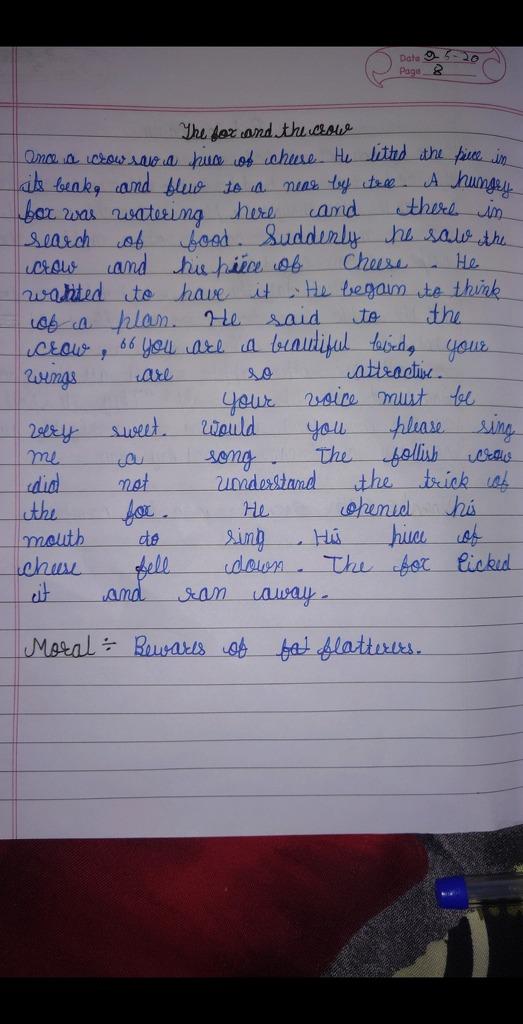 Date 9-5-20
Page 8
The fox and the crow
Once a crow saw a piece of cheese. He letted the piece in
its beak, and flew to a near by tree. A hungry
fox was watering here and there in
search of food. Suddenly he saw the
crow and his piece of Cheese. He
wanted to have it. He begain to think
of a plan. He said to the
crow, "You are a beautiful bird, your
wings are so attractive.
Your voice must be
very sweet. Would you please sing
me a song. The follish crow
did not understand the trick of
the fox. He opened his
mouth to sing. His piece of
cheese fell down. The fox Picked
it and ran away.
Moral ÷ Bewares of flatterers.